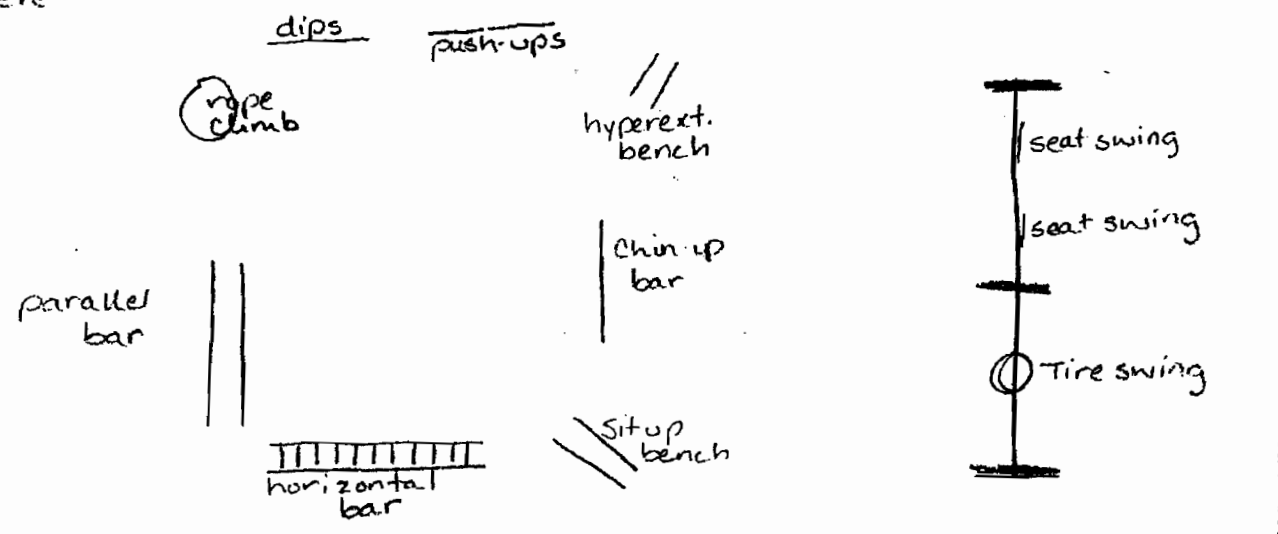 dips
push-ups
rope
climb
hyperext.
bench
seat swing
seat swing
chin-up
bar
parallel
bar
Tire swing
sit up
bench
horizontal
bar